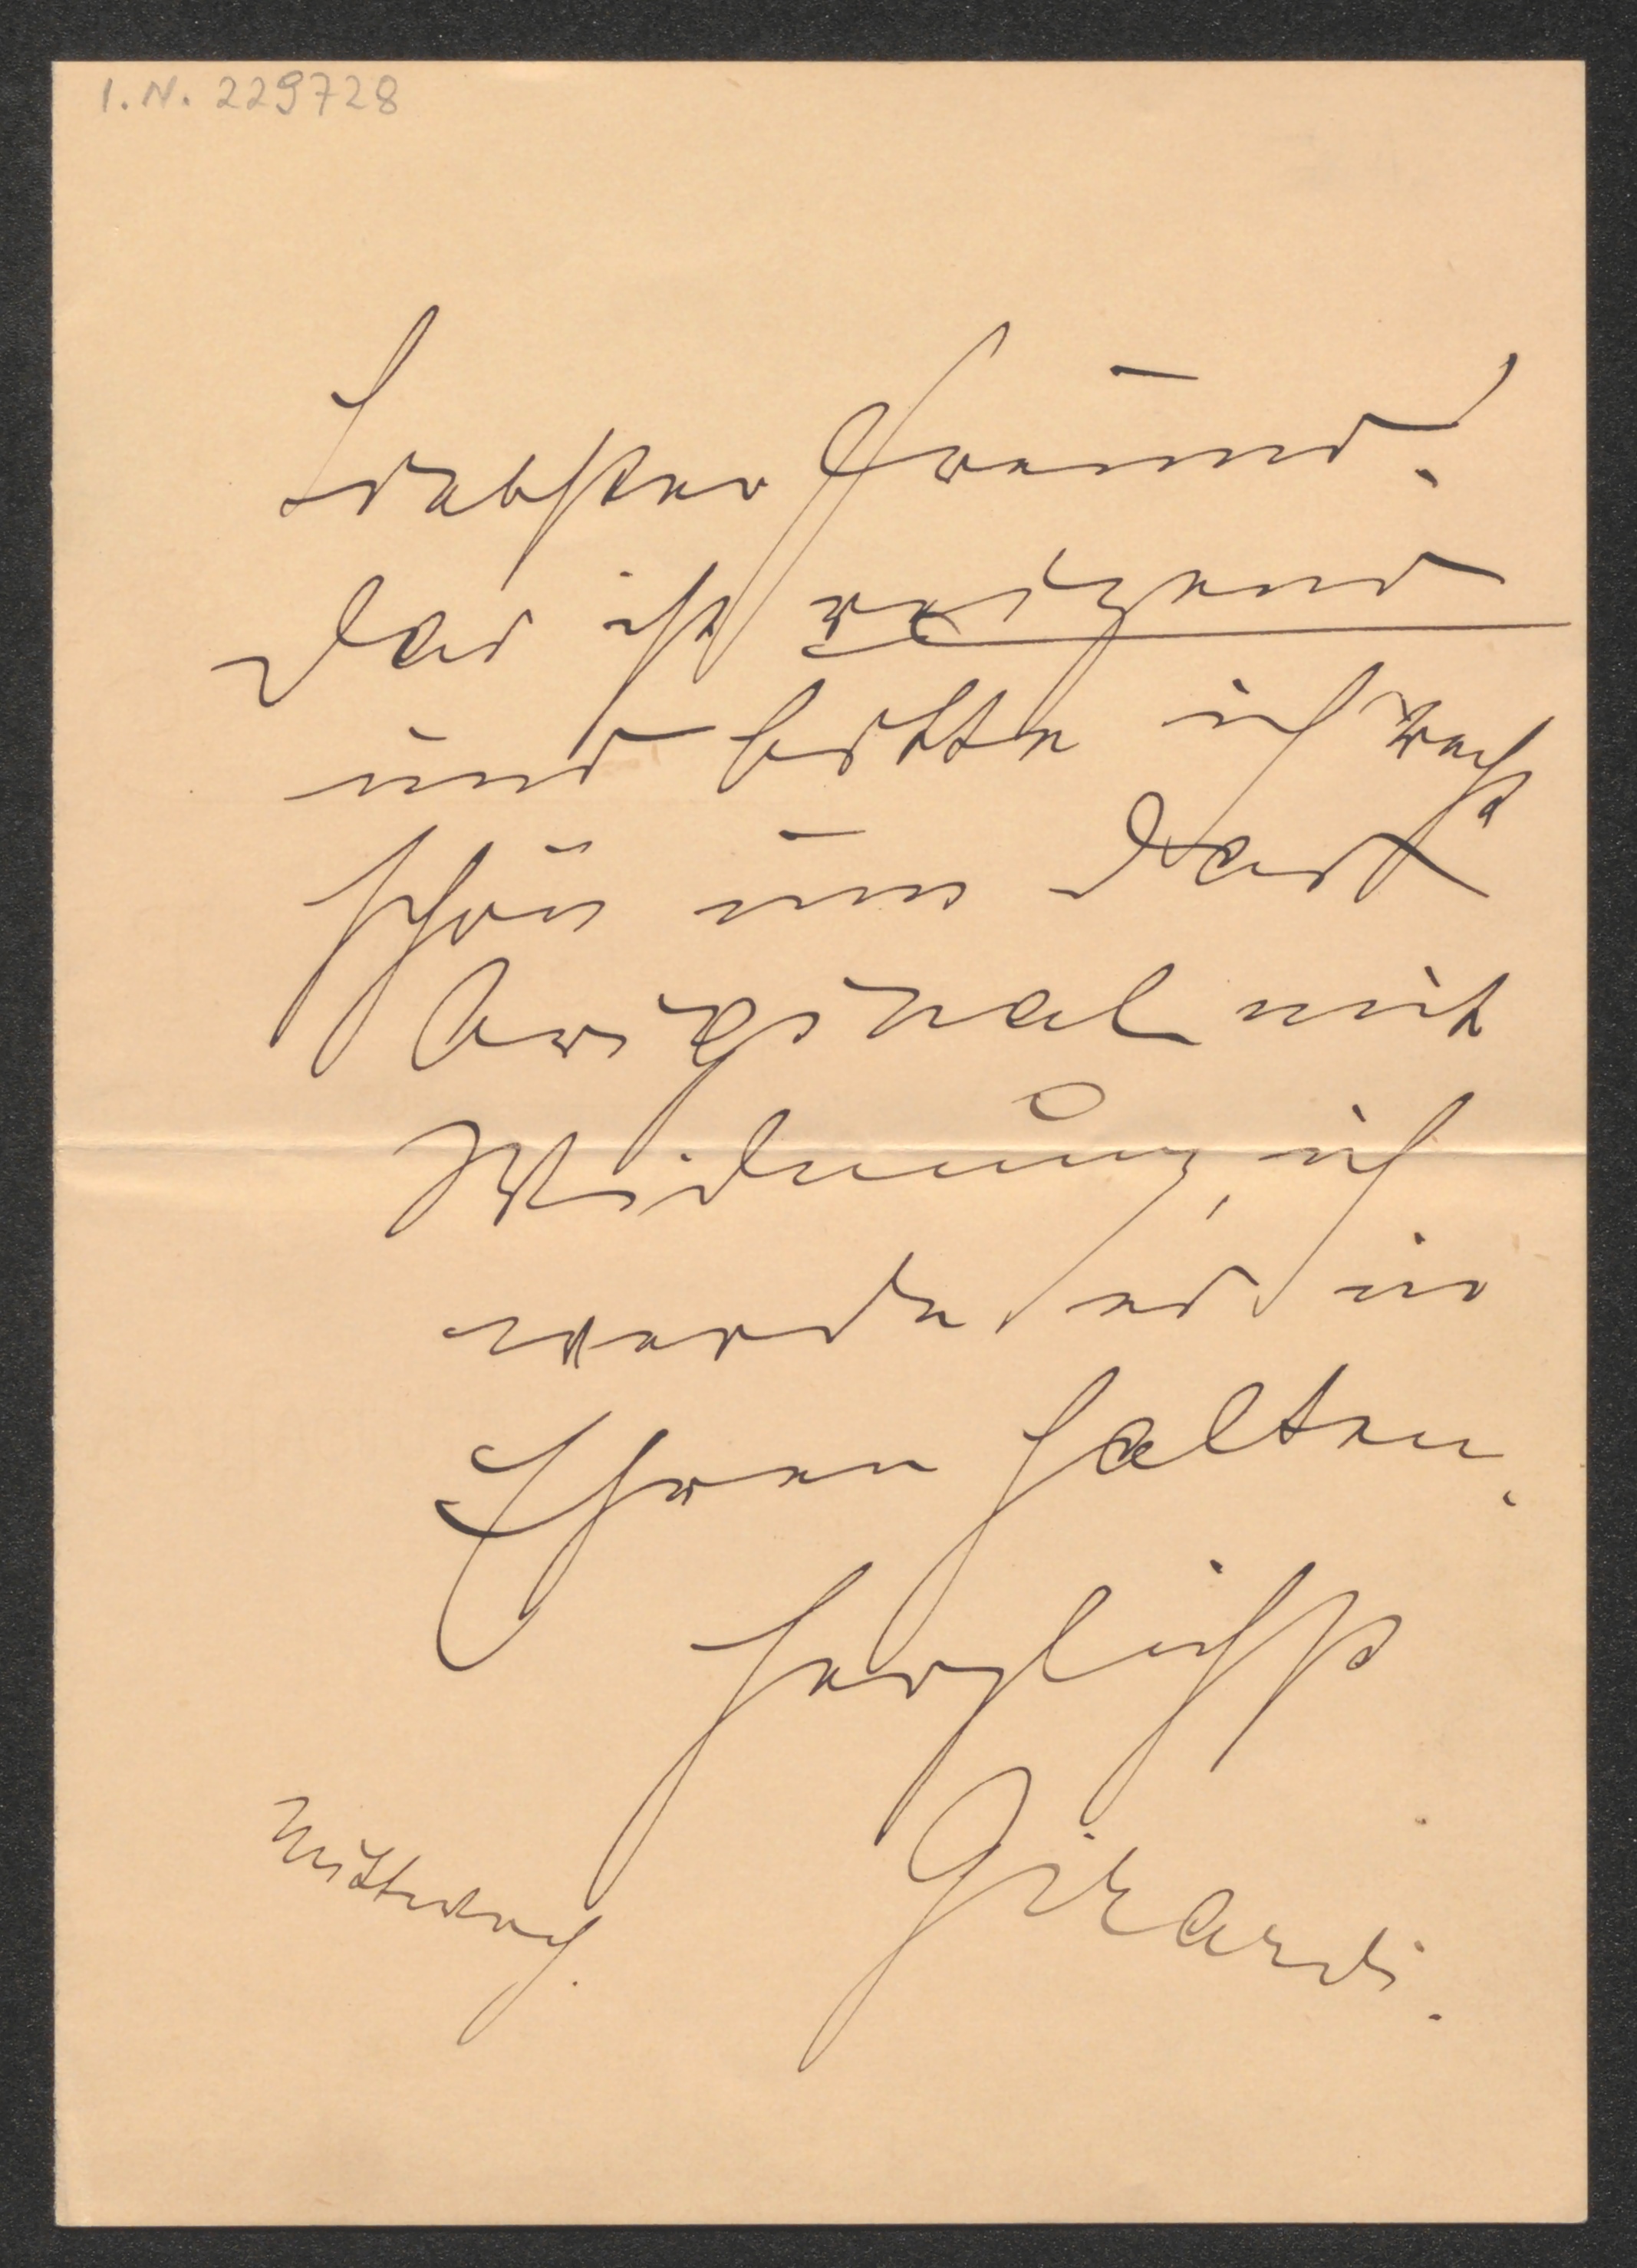 I.N. 229728
Liebster Freund!
Das ist reizend
und bitte ich recht
schön um das
Original mit
Widmung, ich
werde es in
Ehren halten.
Herzlichst
Girardi.
Mittwoch.